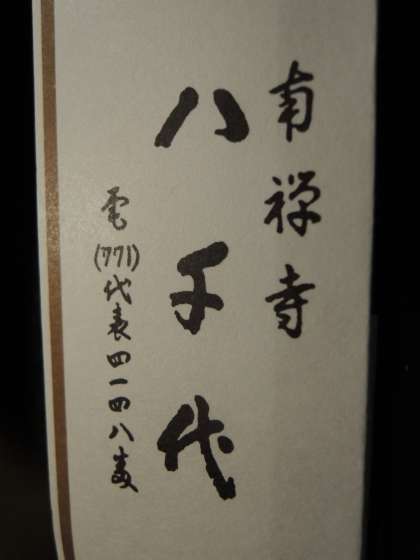 南禅寺
八千代
電(771)代表四一四八番